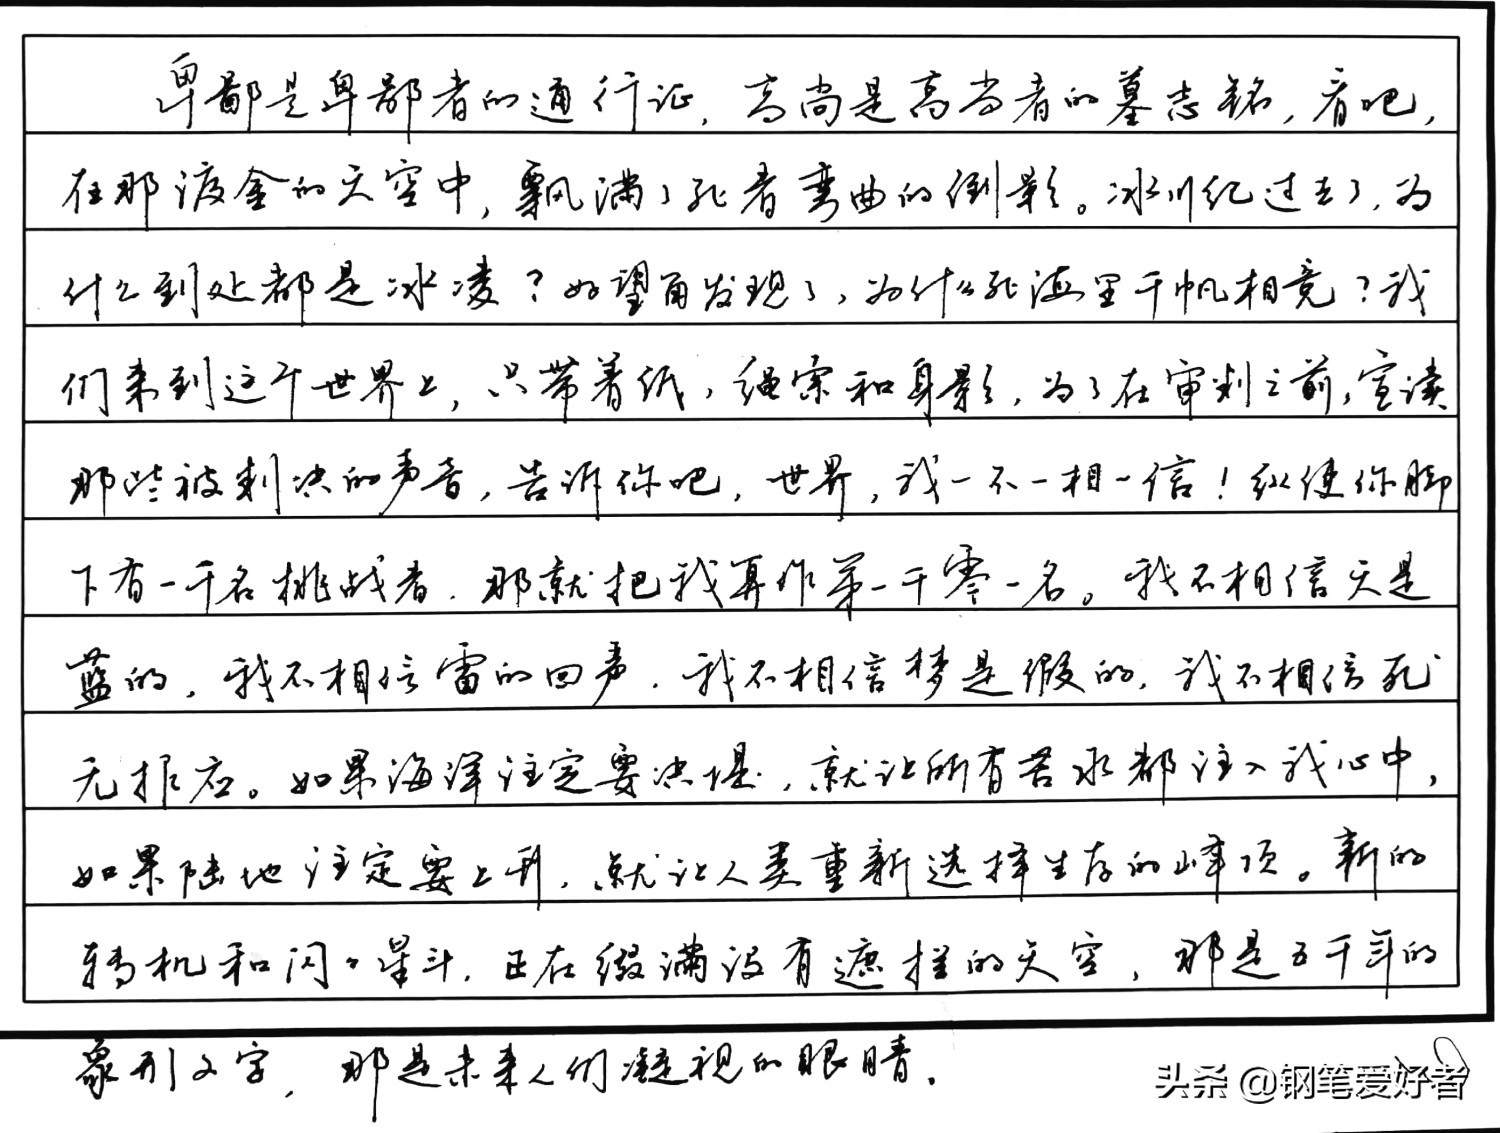 卑鄙是卑鄙者的通行证，高尚是高尚者的墓志铭，看吧，
在那渡金的天空中，飘满了死者弯曲的倒影。冰川纪过去了，为
什么到处都是冰凌？好望角发现了，为什么死海里千帆相竞？我
们来到这个世界上，只带着纸，绳索和身影，为了在审判之前，宣读
那些被判决的声音，告诉你吧，世界，我一不一相一信！纵使你脚
下有一千名挑战者，那就把我算作第一千零一名。我不相信天是
蓝的，我不相信雷的回声，我不相信梦是假的，我不相信死
无报应。如果海洋注定要决堤，就让所有苦水都注入我心中，
如果陆地注定要上升，就让人类重新选择生存的峰顶。新的
转机和闪闪星斗，正在缀满没有遮拦的天空，那是五千年的
象形文字，那是未来人们凝视的眼睛。
头条 @钢笔爱好者